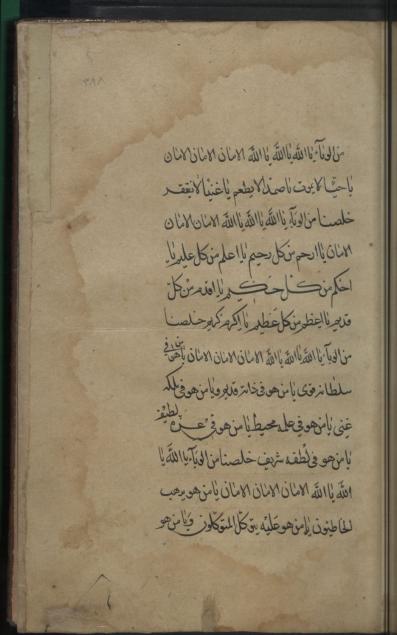 ٣٩٨
من الوباء يا الله يا الله يا الله الامان الامان الامان
يا حيا لا يموت يا صمدا لا يطعم يا غنيا لا يفتقر
خلصنا من الوباء يا الله يا الله يا الله الامان الامان
الامان يا ارحم من كل رحيم يا اعلم من كل عليم يا
احكم من كل حكيم يا اقدم من كل
قديم يا اعظم من كل عظيم يا اكرم كريم خلصنا
من الوباء يا الله يا الله يا الله الامان الامان الامان يا من هو في
سلطانه قوي يا من هو في قديم ويا من هو في ملكه
غني يا من هو في علمه محيط يا من هو في عزه لطيف
يا من هو في لطفه شريف خلصنا من الوباء يا الله يا
الله يا الله الامان الامان الامان يا من هو يرهب
الخاطئون يا من هو عليه يتوكل المتوكلون ويا من هو